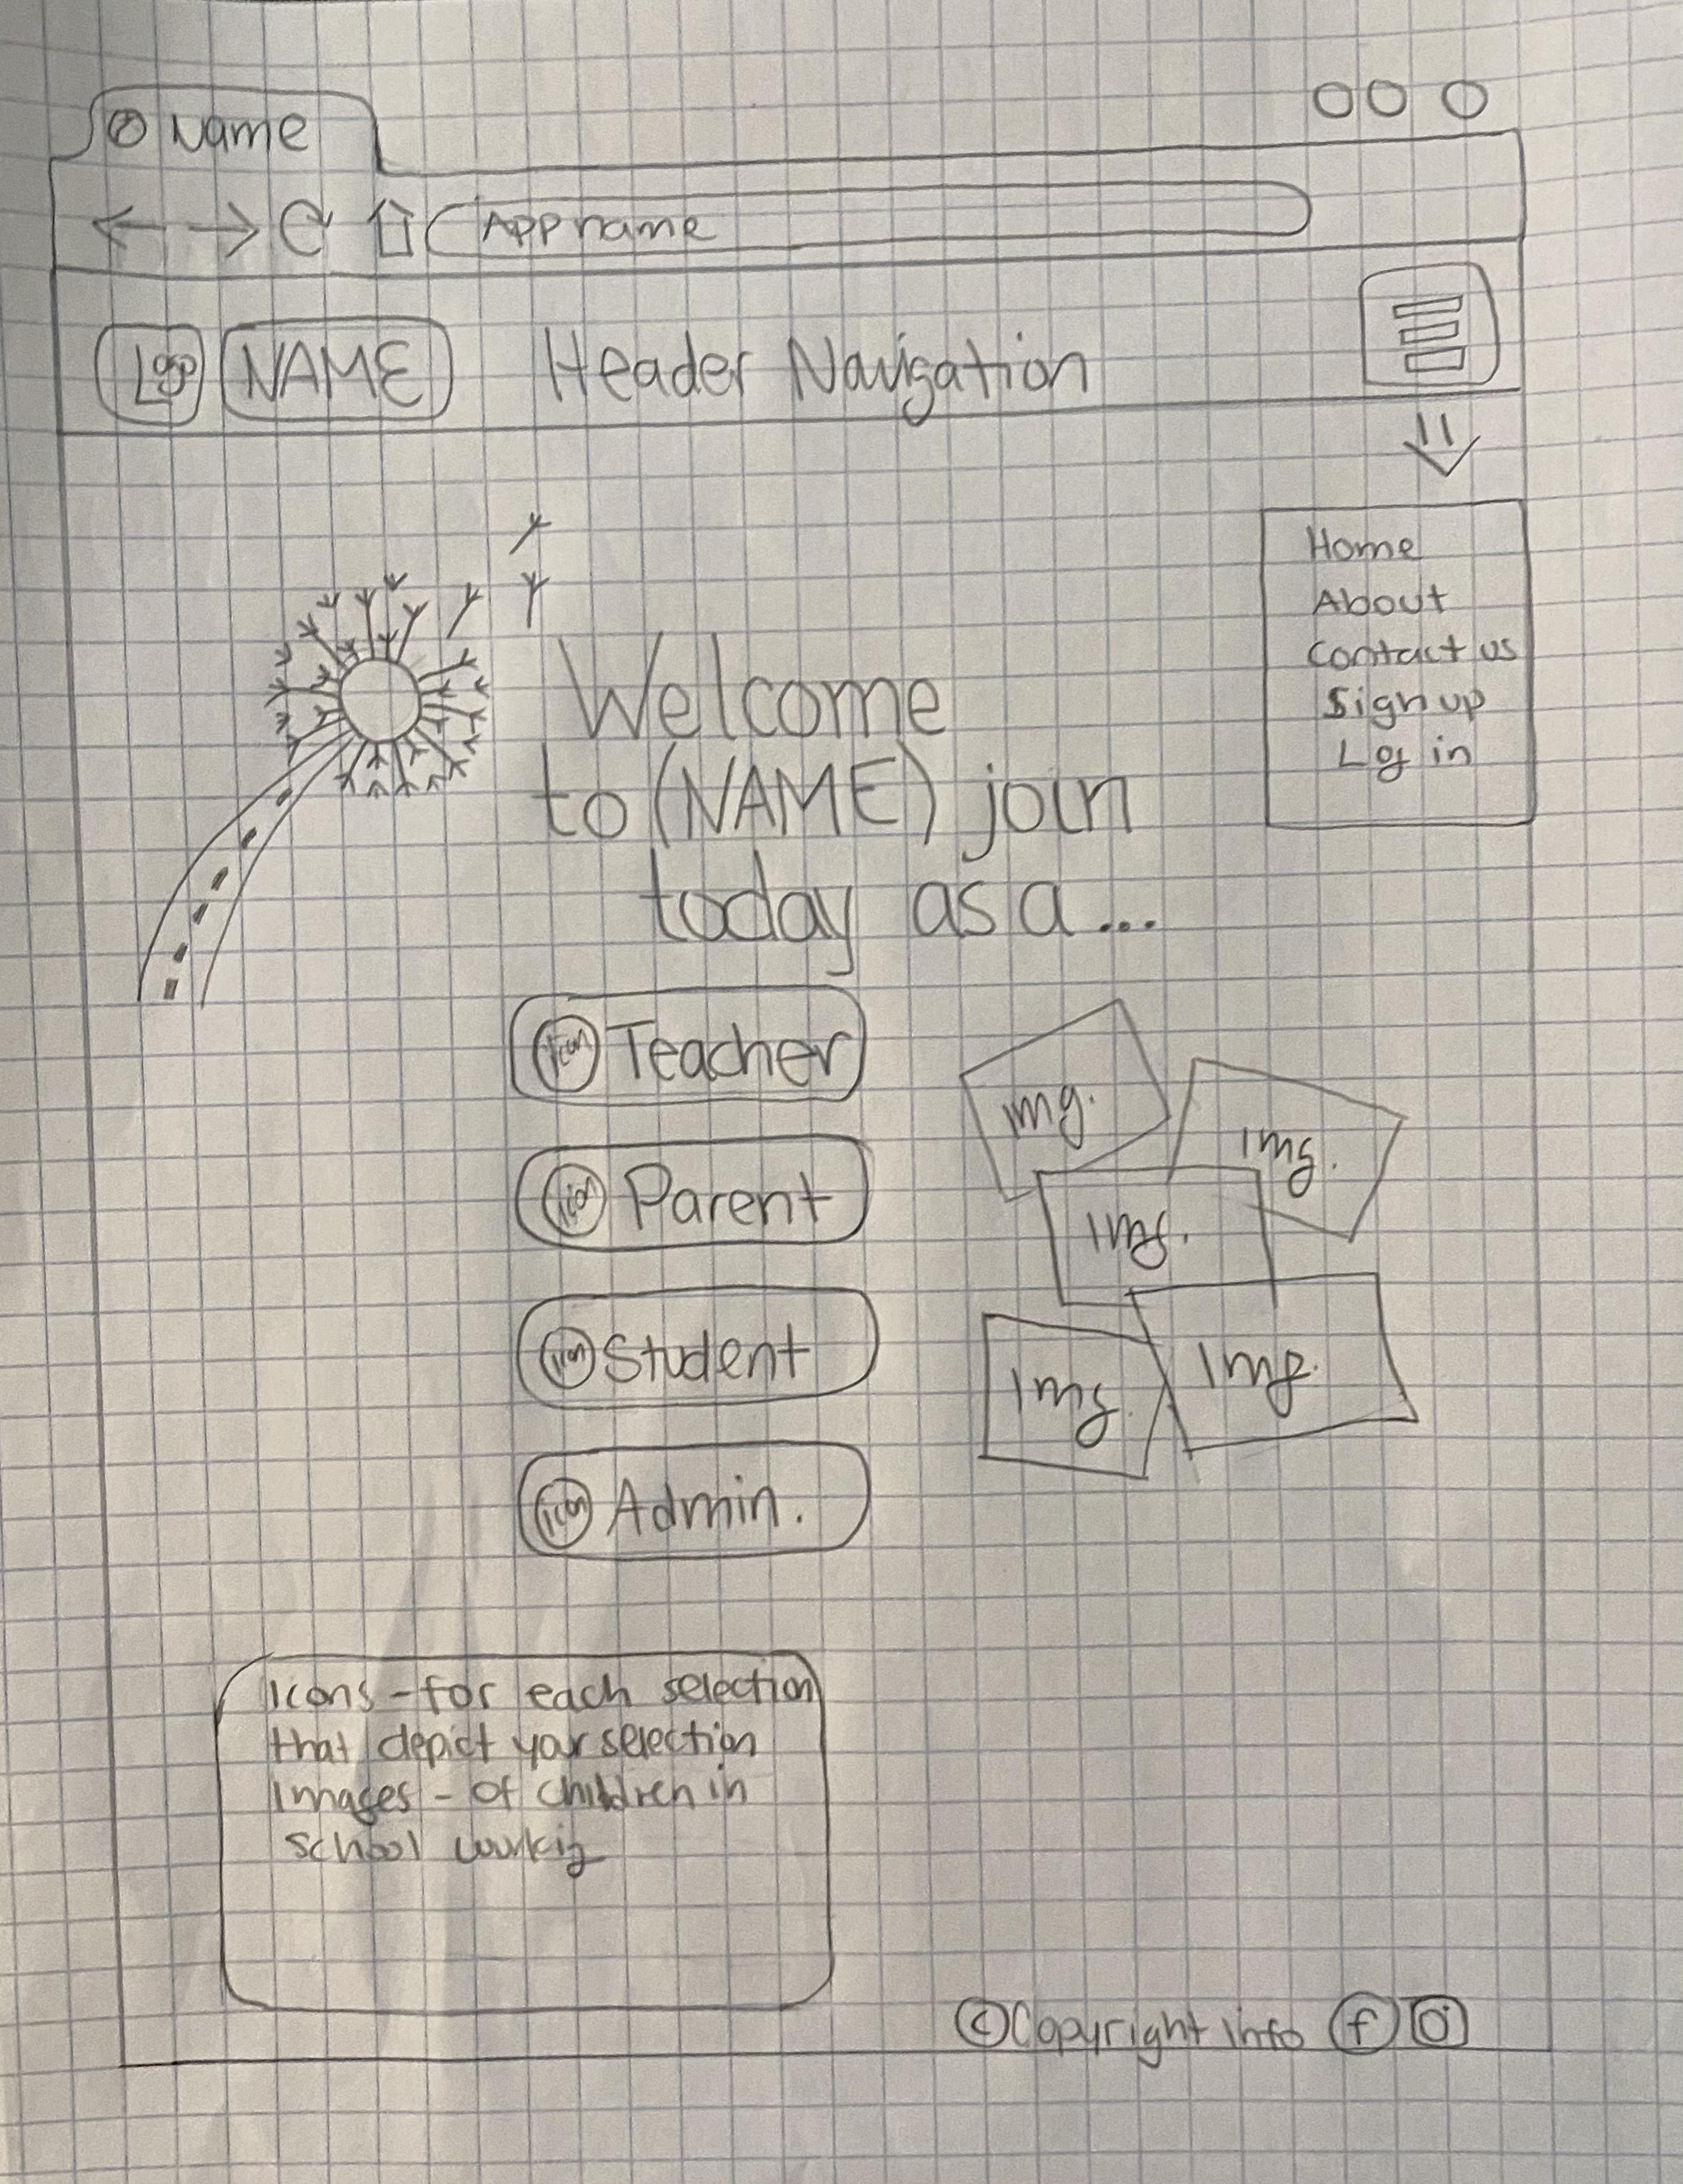 Name
App name
Logo NAME Header Navigation
Home
About
Contact us
Sign up
Log in
Welcome
to (NAME) join
today as a...
Icon Teacher
Icon Parent
Icon Student
Icon Admin.
img.
img.
img.
img.
img.
Icons - for each selection
that depict your selection
Images - of children in
school workig
© Copyright info f